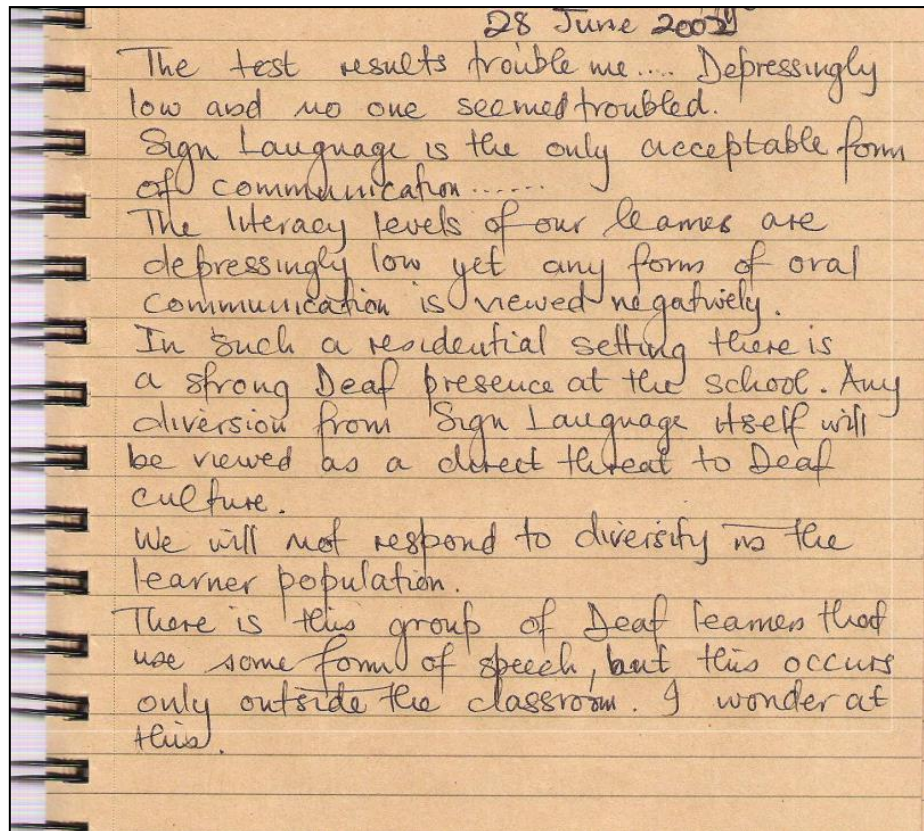 28 June
The test results trouble me.... Depressingly
low and no one seemed troubled.
Sign Language is the only acceptable form
of communication......
The literacy levels of our learners are
depressingly low yet any form of oral
communication is viewed negatively.
In such a residential setting there is
a strong Deaf presence at the school. Any
diversion from Sign Language itself will
be viewed as a direct threat to Deaf
culture.
We will not respond to diversity in the
learner population.
There is this group of Deaf learners that
use some form of speech, but this occurs
only outside the classroom. I wonder at
this.